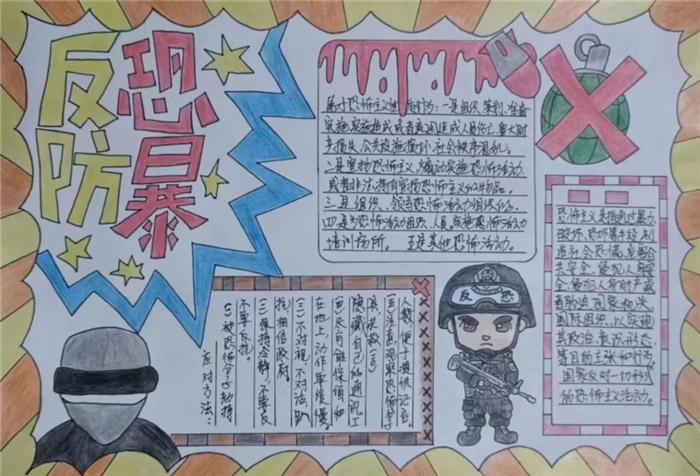 反恐
防暴
属于恐怖主义性质行为：一是组织、策划、准备
实施、实施造成或者意图造成人员伤亡、重大财
产损失、公共设施损坏、社会秩序混乱。
二是宣扬恐怖主义，煽动实施恐怖活动，
或者非法持有宣扬恐怖主义的物品。
三是组织、领导恐怖活动组织的。
四是为恐怖活动组织、人员、实施恐怖活动
培训场所。五是其他恐怖活动。
恐怖主义是指通过暴力
破坏、恐吓等手段，制
造社会恐慌、危害公
共安全、侵犯人身财产
或者胁迫国家机关、
国际组织，以实现
其政治、意识形态
等目的主张和行为。
国家反对一切形式
的恐怖主义活动。
反恐
应对方法：
(一)被恐怖分子劫持
不要反抗。
(二)保持冷静，不要反
抗，相信政府。
(三)不对视，不对话，趴
在地上，动作要缓慢
(四)尽可能保留和
隐藏自己的通讯工
具
(五)注意观察恐怖分子
人数，便于提供证言。